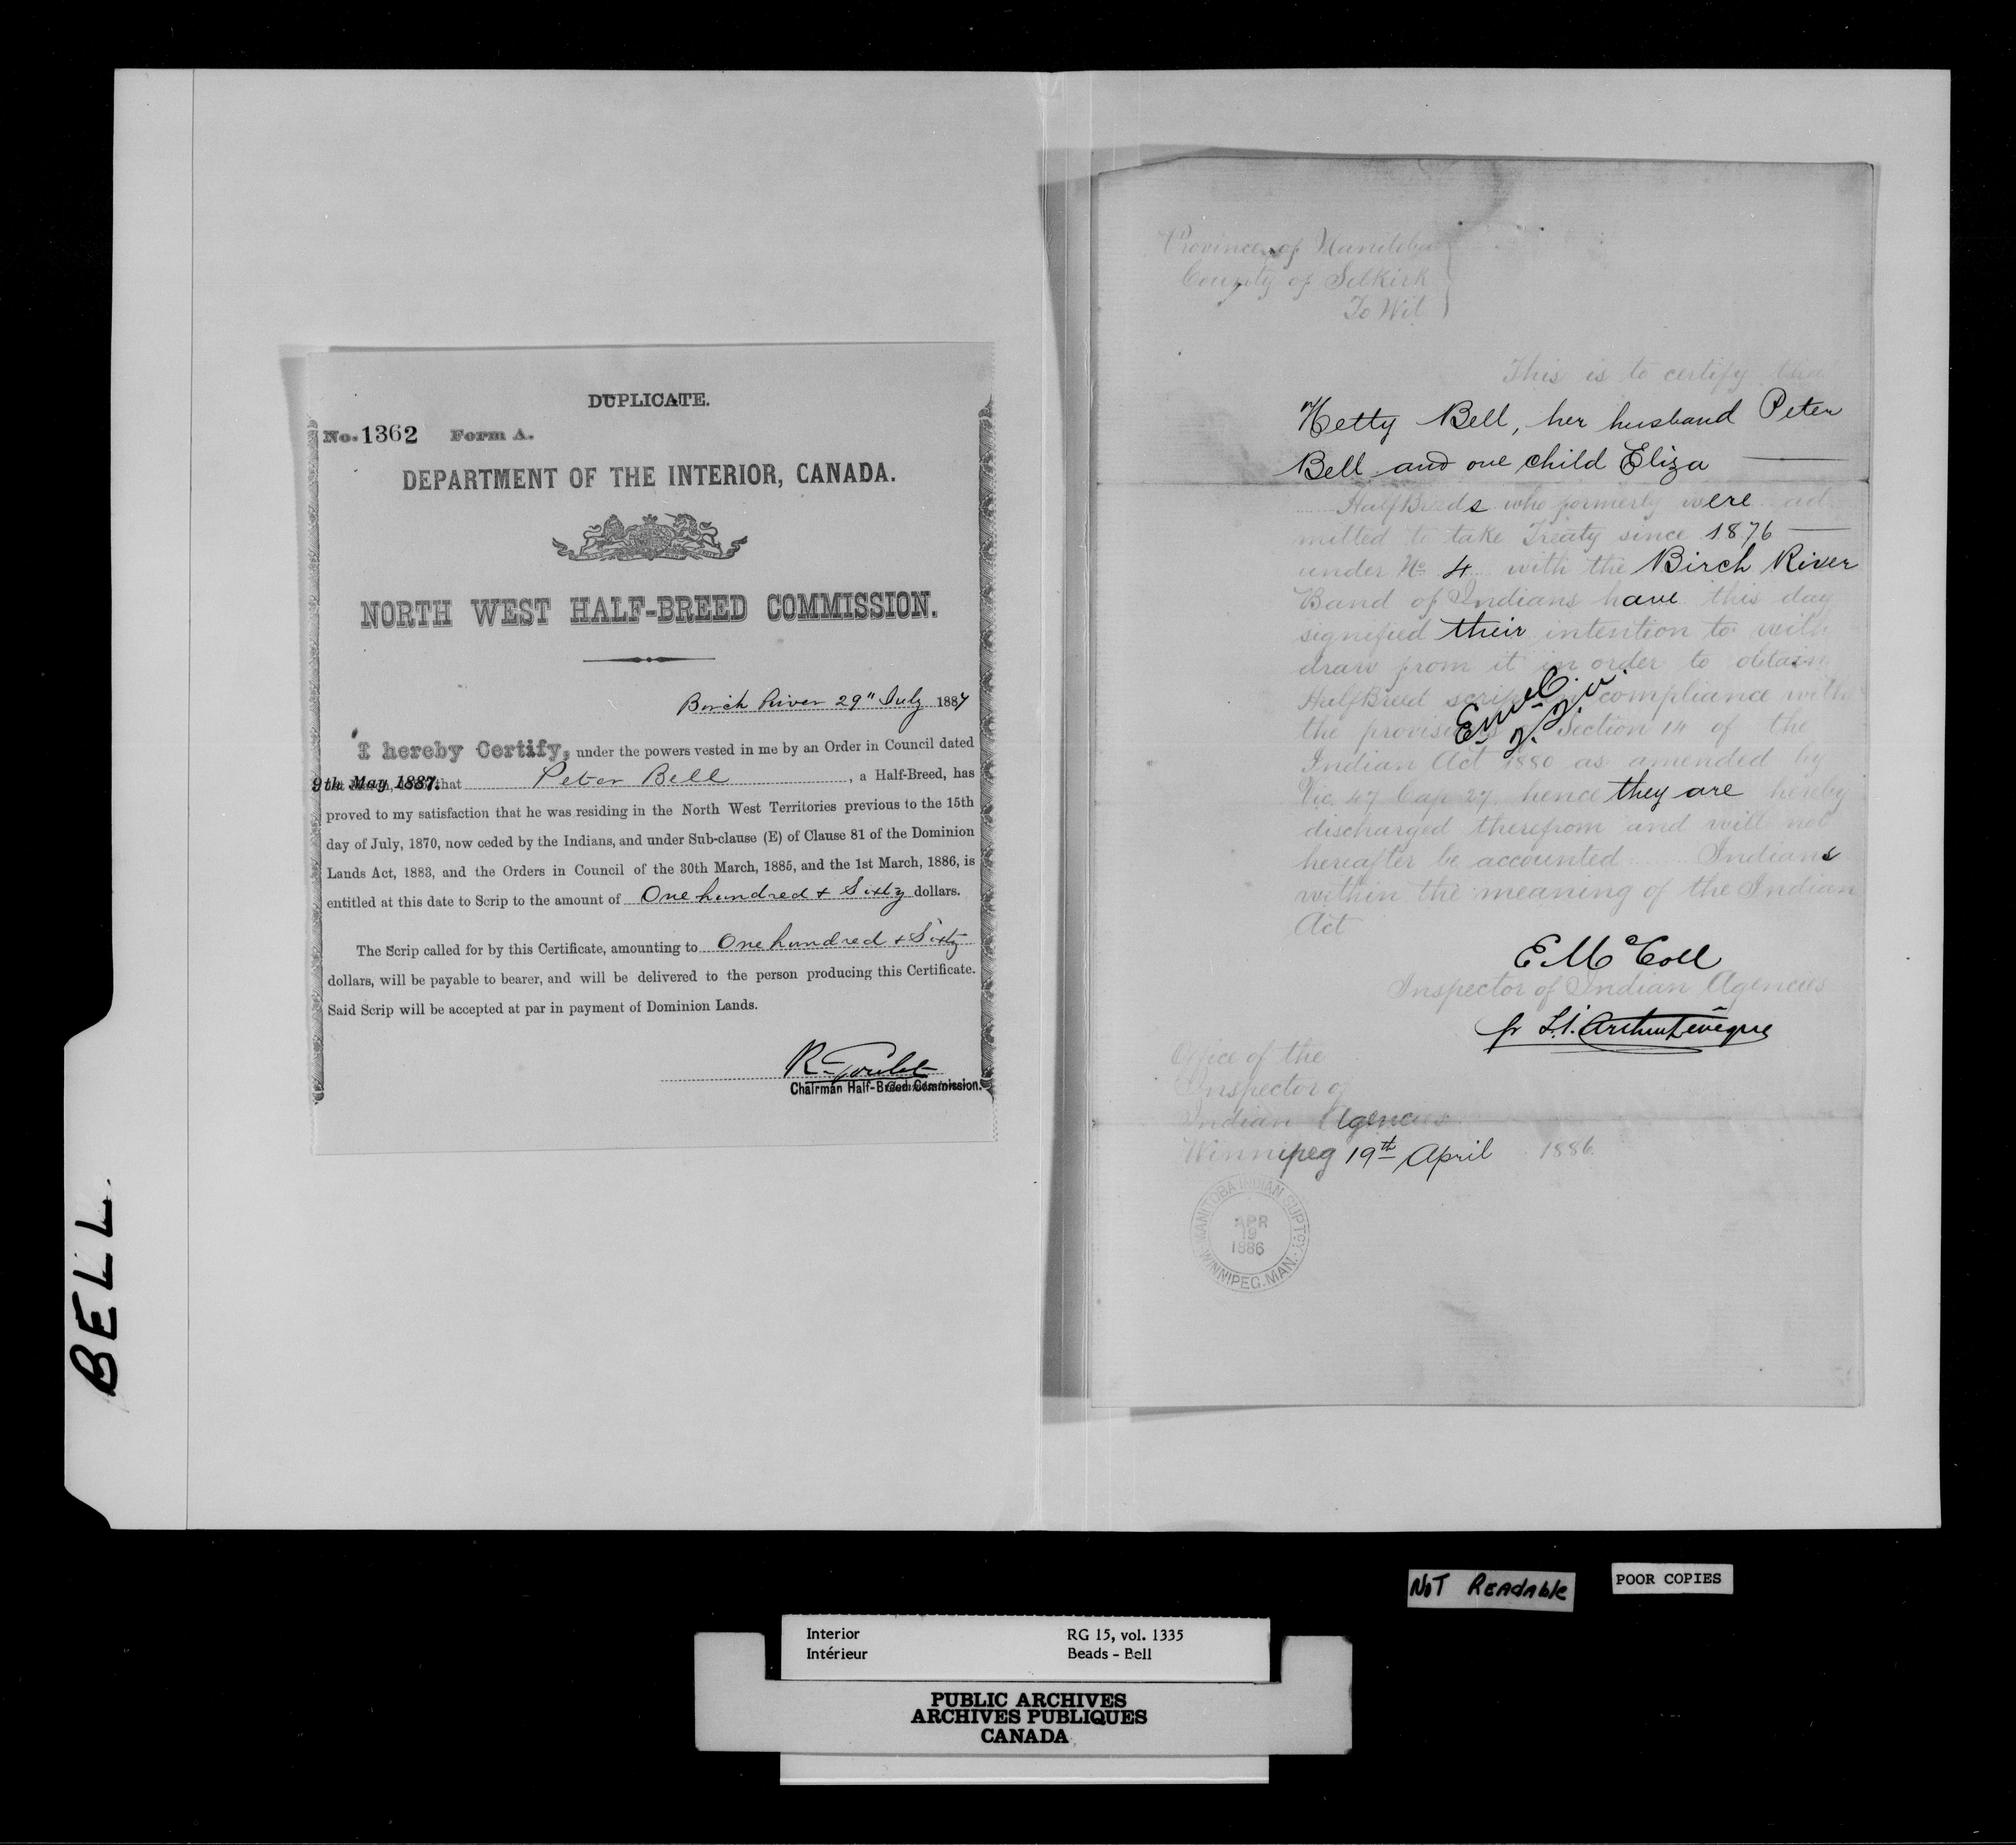 BELL.
DUPLICATE.
No. 1362 Form A.
DEPARTMENT OF THE INTERIOR, CANADA.
NORTH WEST HALF-BREED COMMISSION.
Birch River 29" July 1887
I hereby Certify, under the powers vested in me by an Order in Council dated
9th May 1887. that Peter Bell, a Half-Breed, has
proved to my satisfaction that he was residing in the North West Territories previous to the 15th
day of July, 1870, now ceded by the Indians, and under Sub-clause (E) of Clause 81 of the Dominion
Lands Act, 1883, and the Orders in Council of the 30th March, 1885, and the 1st March, 1886, is
entitled at this date to Scrip to the amount of One hundred + Sixty dollars.
The Scrip called for by this Certificate, amounting to One hundred + Sixty
dollars, will be payable to bearer, and will be delivered to the person producing this Certificate.
Said Scrip will be accepted at par in payment of Dominion Lands.
R. Goulet
Chairman Half-Breed Commission.
Province of Manitoba
County of Selkirk
To Wit
This is to certify that
Hetty Bell, her husband Peter
Bell and one child Eliza
HalfBreeds who formerly were ad
mitted to take Treaty since 1876
under No 4 with the Birch River
Band of Indians have this day
signified their intention to with
draw from it in order to obtain
HalfBreed scrip in compliance with
the provisions of Section 14 of the
Indian Act 1880 as amended by
Vic. 47 Cap 27 hence they are hereby
discharged therefrom and will not
hereafter be accounted Indians
within the meaning of the Indian
Act
E McColl
Inspector of Indian Agencies
pr L. J. Arthur Leveque
Office of the
Inspector of
Indian Agencies
Winnipeg 19th April 1886
MANITOBA INDIAN SUPTCY.
APR
19
1886
WINNIPEG. MAN.
NOT READABLE
POOR COPIES
Interior RG 15, vol. 1335
Intérieur Beads - Bell
PUBLIC ARCHIVES
ARCHIVES PUBLIQUES
CANADA